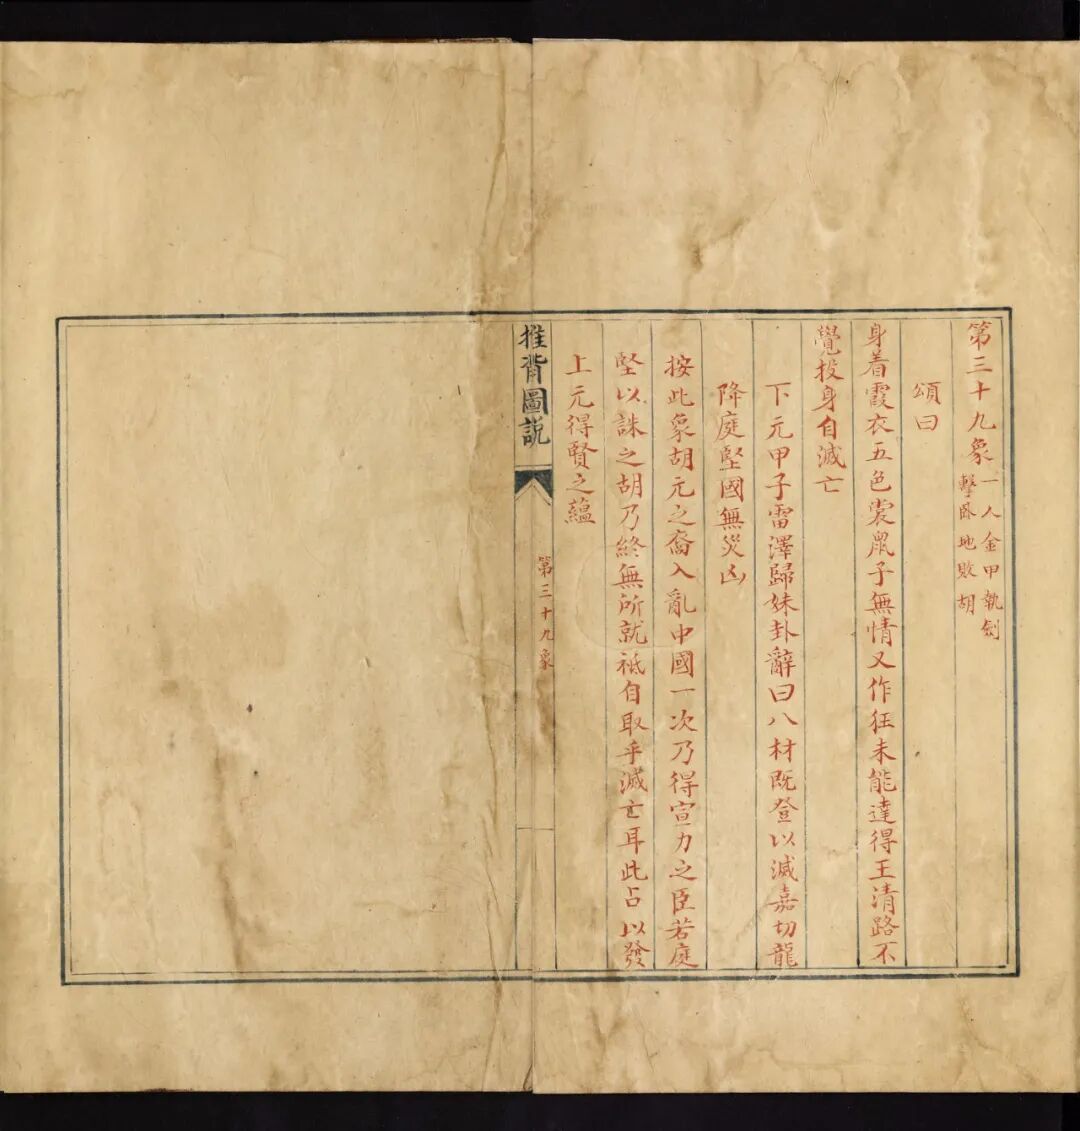 第三十九象
一人金甲執劍
擊卧地敗胡
頌曰
身着霞衣五色裳鼠子無情又作狂未能達得王清路不
覺投身自滅亡
下元甲子雷澤歸妹卦辭曰八材既登以滅嘉切龍
降庭堅國無災凶
按此象胡元之裔入亂中國一次乃得宣力之臣若庭
堅以誅之胡乃終無所就祗自取乎滅亡耳此占以發
上元得賢之蘊
推背圖說
第三十九象